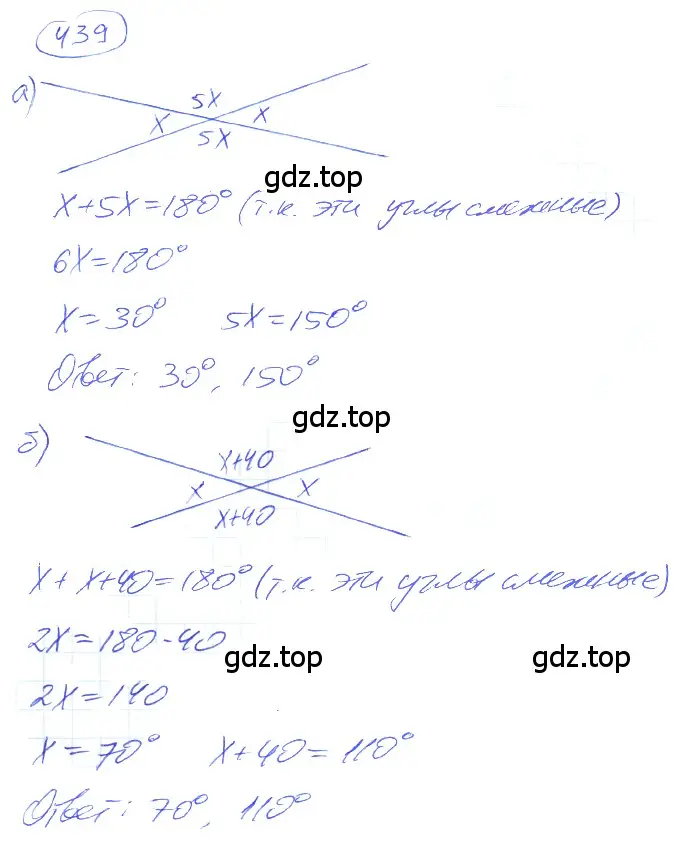 439
а)
5x
x x
5x
gdz.top
x+5x=180° (т.к. эти углы смежные)
6x=180°
x=30° 5x=150°
Ответ: 30°, 150°
gdz.top
б)
x+40
x x
x+40
x+x+40=180° (т.к. эти углы смежные)
2x=180-40
gdz.top gdz.top
2x=140
x=70° x+40=110°
Ответ: 70°, 110°